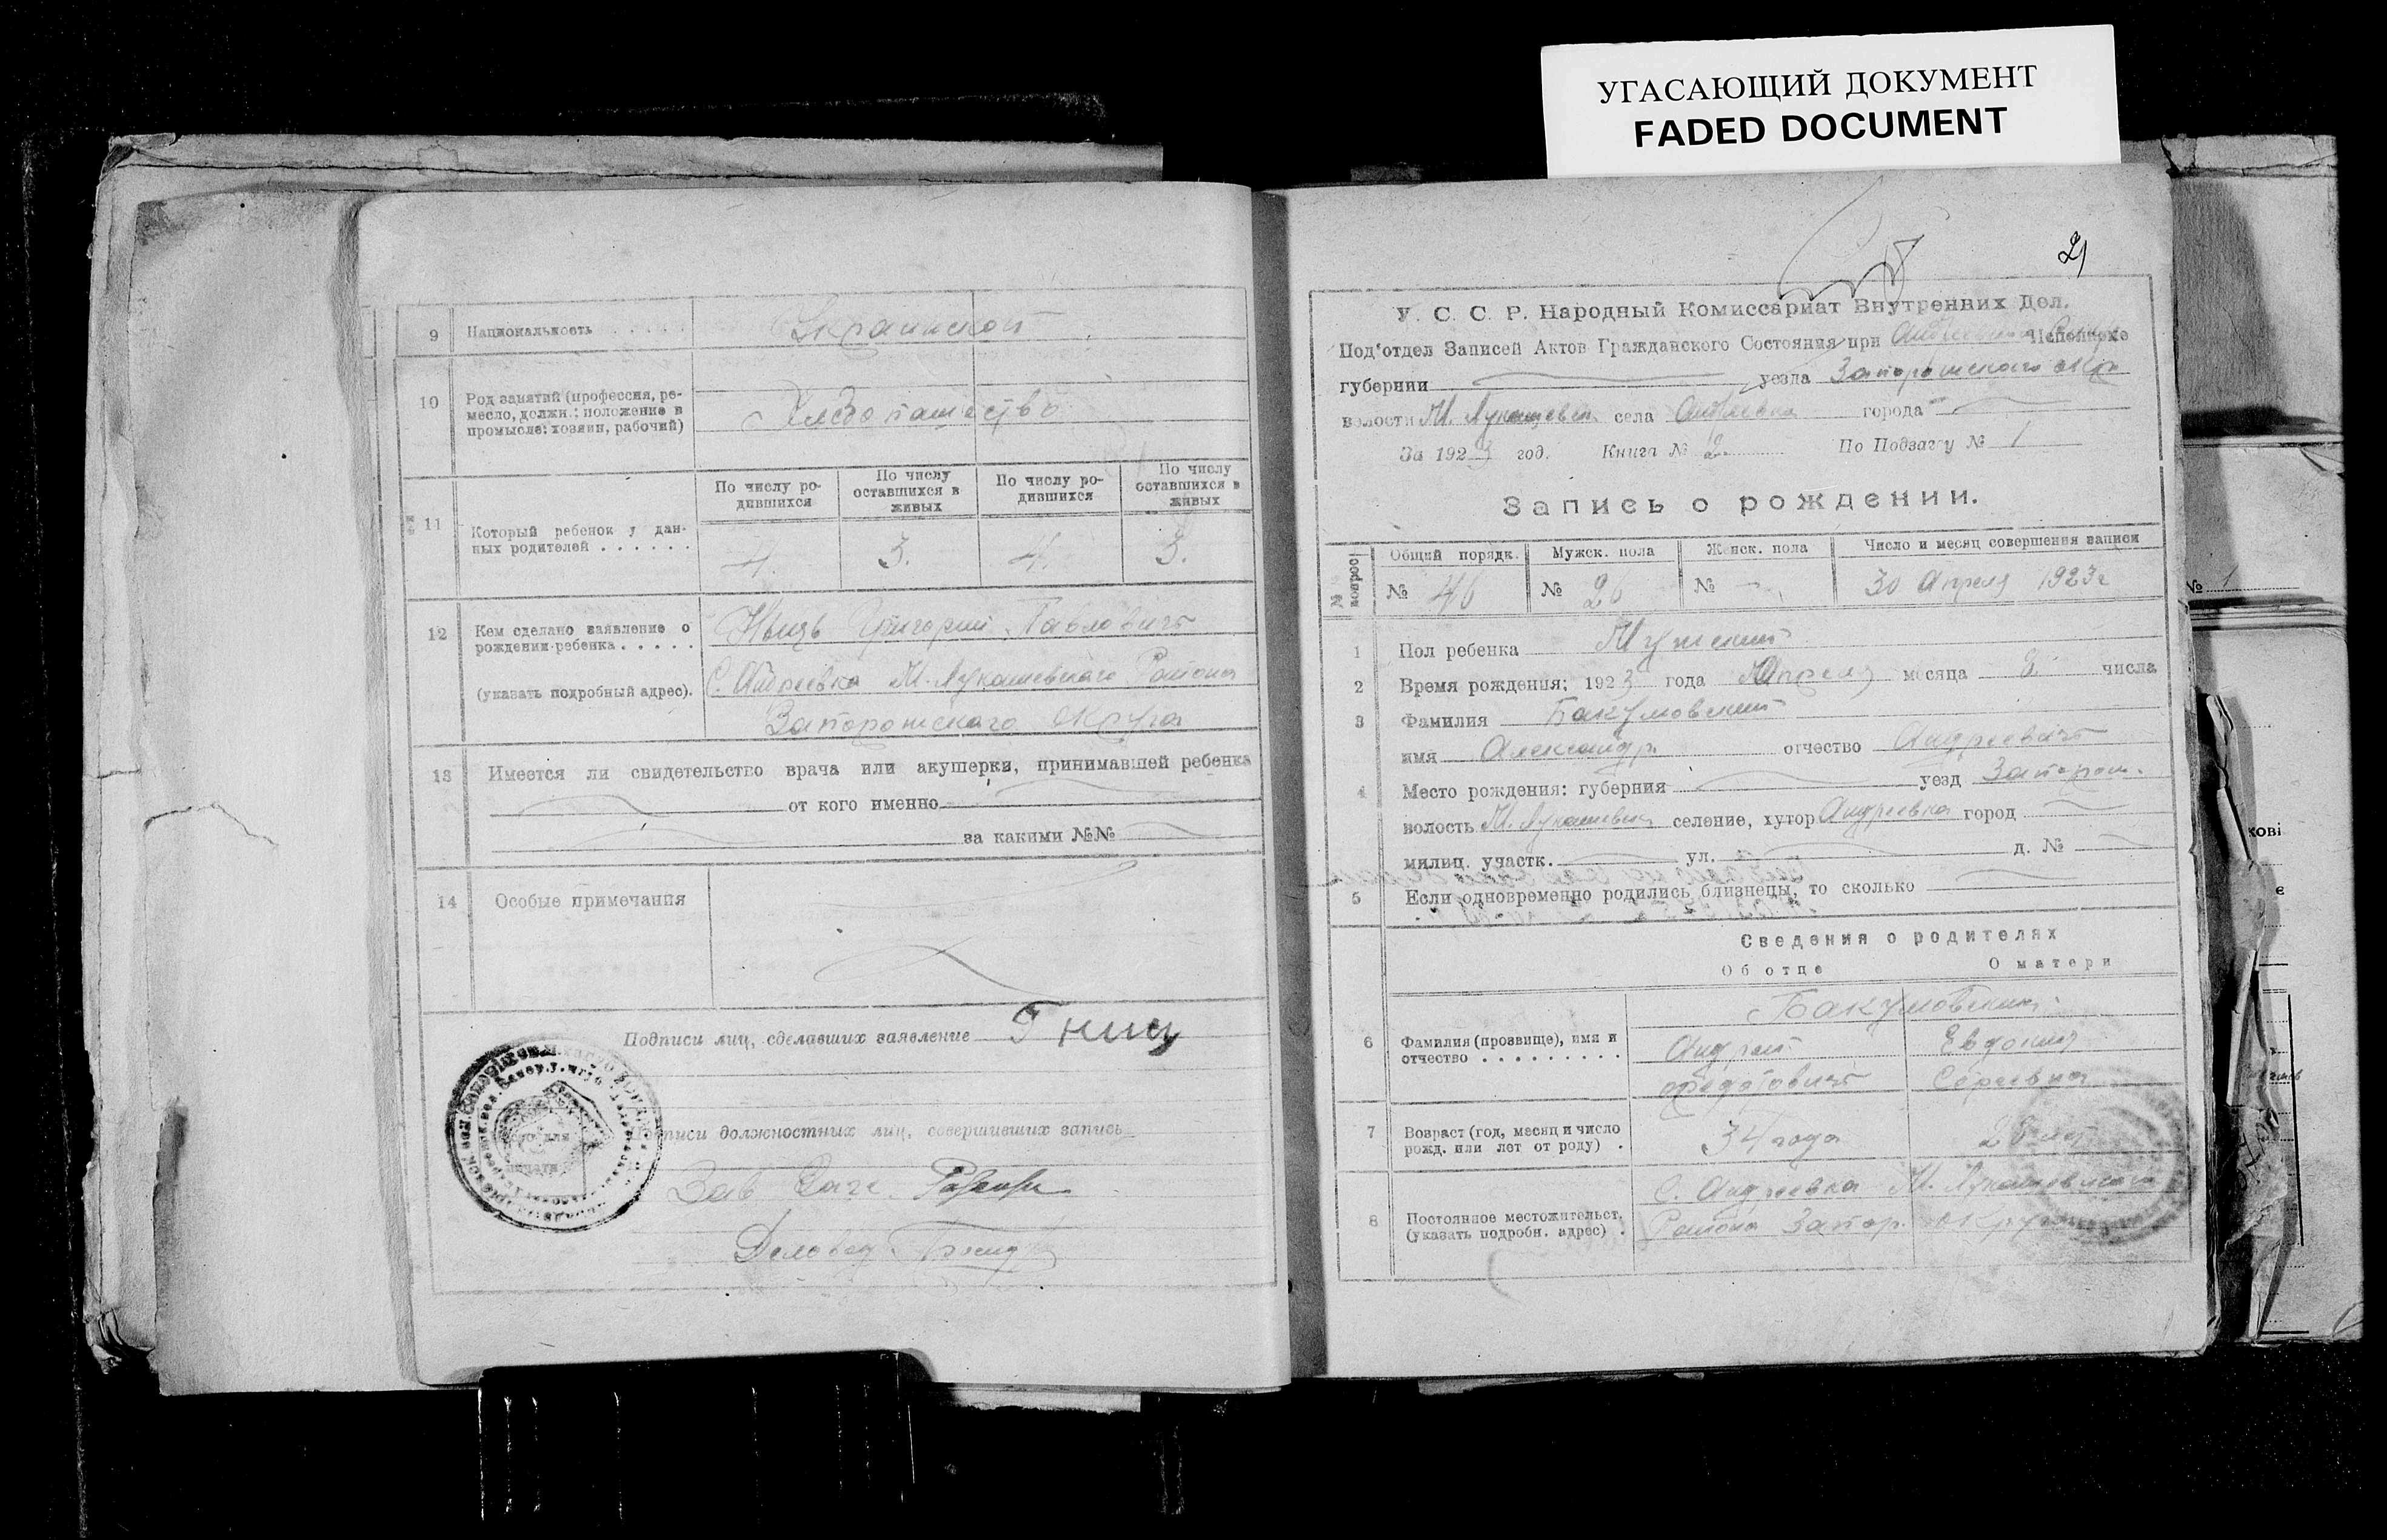 УГАСАЮЩИЙ ДОКУМЕНТ
FADED DOCUMENT
9 Национальность . . . . . Украинской
10 Род занятий (профессия, ре-
месло, должн.; положение в
промысле: хозяин, рабочий)
Хлебопашество
11 Который ребенок у дан-
ных родителей . . . . . .
По числу ро-
дившихся
По числу
оставшихся в
живых
По числу ро-
дившихся
По числу
оставшихся в
живых
4. 3. 4. 3.
12 Кем сделано заявление о
рождении ребенка . . . . .
(указать подробный адрес).
Григорий Павлович
С. Андреевка М. Лукашевскаго Района
Запорожскаго округа
13 Имеется ли свидетельство врача или акушерки, принимавшей ребенка
от кого именно
за какими №№
14 Особые примечания
Подписи лиц, сделавших заявление
Подписи должностных лиц, совершивших запись
Зав
Деловод
21
У. С. С. Р. Народный Комиссариат Внутренних Дел.
Под'отдел Записей Актов Гражданского Состояния при Исполкоме
губернии уезда Запорожскаго окр
волости М. Лукашевск села Андреевка города
За 1923 год. Книга № 2. По Подзагсу № 1
Запись о рождении.
№ вопрос.
Общий порядк. Мужск. пола Женск. пола Число и месяц совершения записи
№ 46 № 26 № — 30 Апреля 1923 г
1 Пол ребенка Мужский
2 Время рождения: 1923 года Апреля месяца 8 числа
3 Фамилия Бакумовский
имя Александр отчество Андреевич
4 Место рождения: губерния уезд Запорож.
волость М. Лукашевск селение, хутор Андреевка город
милиц. участк. ул. д. №
5 Если одновременно родились близнецы, то сколько
Сведения о родителях
Об отце О матери
6 Фамилия (прозвище), имя и
отчество . . . . . . . . .
Бакумовские
Андрей Евдокия
Федотович Сергеевна
7 Возраст (год, месяц и число
рожд. или лет от роду) .
34 года 28 лет
8 Постоянное местожительст.
(указать подробн. адрес) .
С. Андреевка М. Лукашевскаго
Района Запор. округа
№ 1